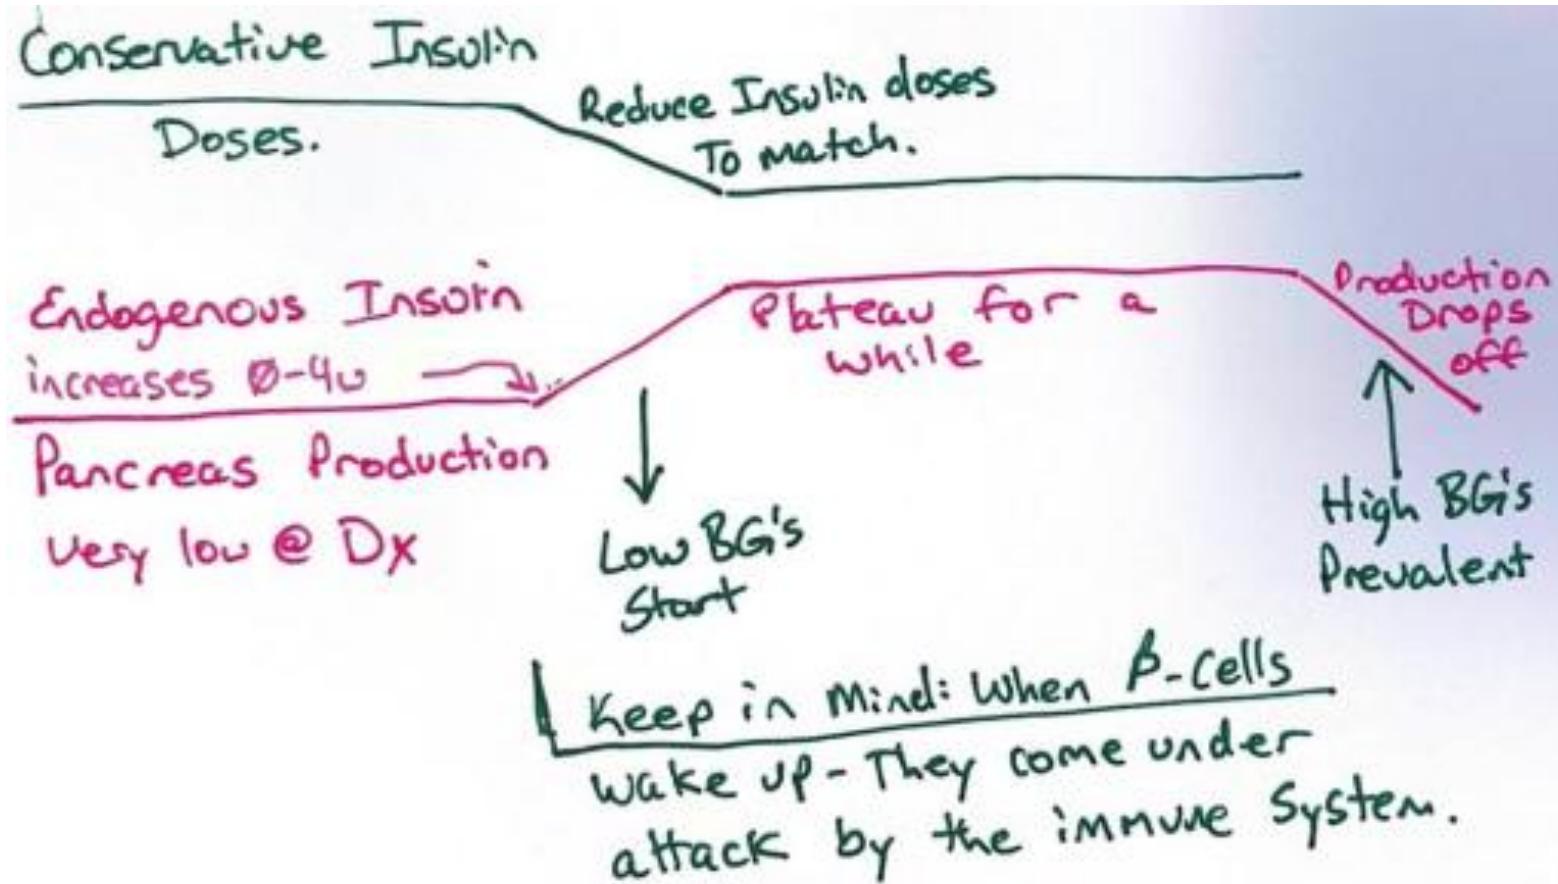 Conservative Insulin
Doses.
Reduce Insulin doses
To match.
Endogenous Insulin
increases Ø-4u
Pancreas Production
very low @ Dx
Plateau for a
while
Production
Drops
off
Low BG's
Start
High BG's
Prevalent
Keep in Mind: When β-Cells
wake up - They come under
attack by the immune System.